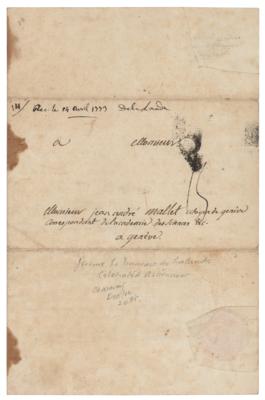 Rec. le 14 avril 1777 DelaLande
a Monsieur
Monsieur jean andré Mallet citoyen de genève
Correspondant de l'academie des sciences &c
a genève.
Jérome Le Francais de Lalande
Celebrated Astronomer